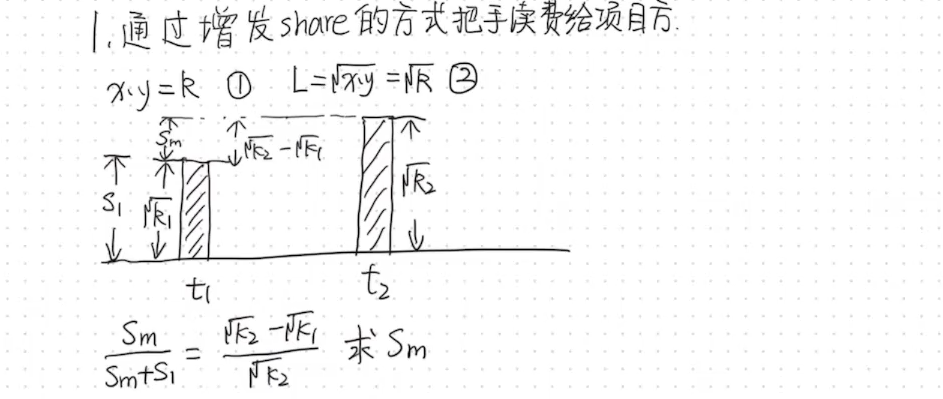 1.通过增发share的方式把手续费给项目方.
x·y=k ① L=√x·y=√k ②
Sm √k₂-√k₁
S₁ √k₁ √k₂
t₁ t₂
Sm/(Sm+S₁) = (√k₂-√k₁)/√k₂ 求Sm